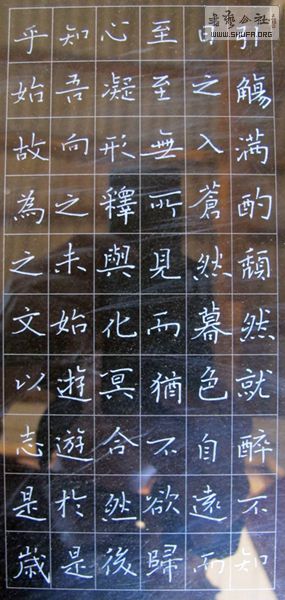 引觴滿酌頹然就醉不知
日之入蒼然暮色自遠而
至至無所見而猶不欲歸
心凝形釋與化冥合然後
知吾向之未始遊遊於是
乎始故為之文以志是歲
書藝公社
WWW.SHUFA.ORG